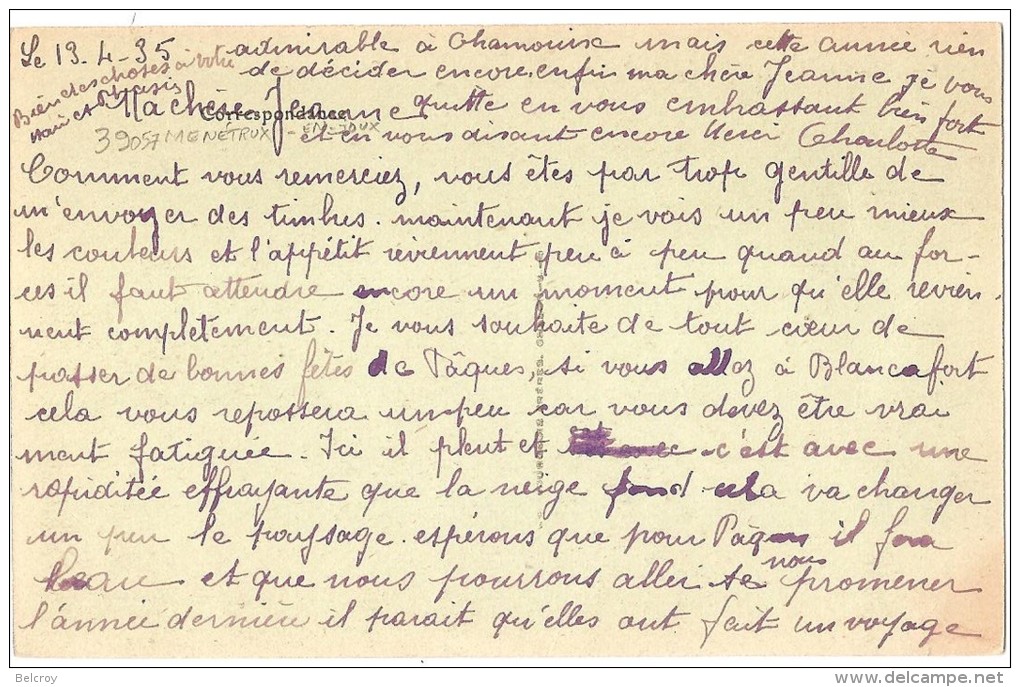 Le 13-4-35
Ma chère Jeanne
Correspondance
39057 MENÉTRUX-EN-JOUX
Comment vous remerciez, vous êtes par trop gentille de
m'envoyer des timbres. maintenant je vais un peu mieux
les couleurs et l'appétit reviennent peu à peu quand au for-
ces il faut attendre encore un moment pour qu'elle revien-
nent complètement. Je vous souhaite de tout cœur de
passer de bonnes fêtes de Pâques, si vous allez à Blancafort
cela vous repossera un peu car vous devez être vrai
ment fatiguée. Ici il pleut et c'est avec une
rapiditée effrayante que la neige fond cela va changer
un peu le paysage. espérons que pour Pâques il fera
beau et que nous pourrons aller se nous promener
l'année dernière il parait qu'elles ont fait un voyage
admirable à Chamounix mais cette année rien
de décider encore. enfin ma chère Jeanne je vous
quitte en vous embrassant bien fort
et en vous disant encore Merci Charlotte
Bien des choses à votre
mari et